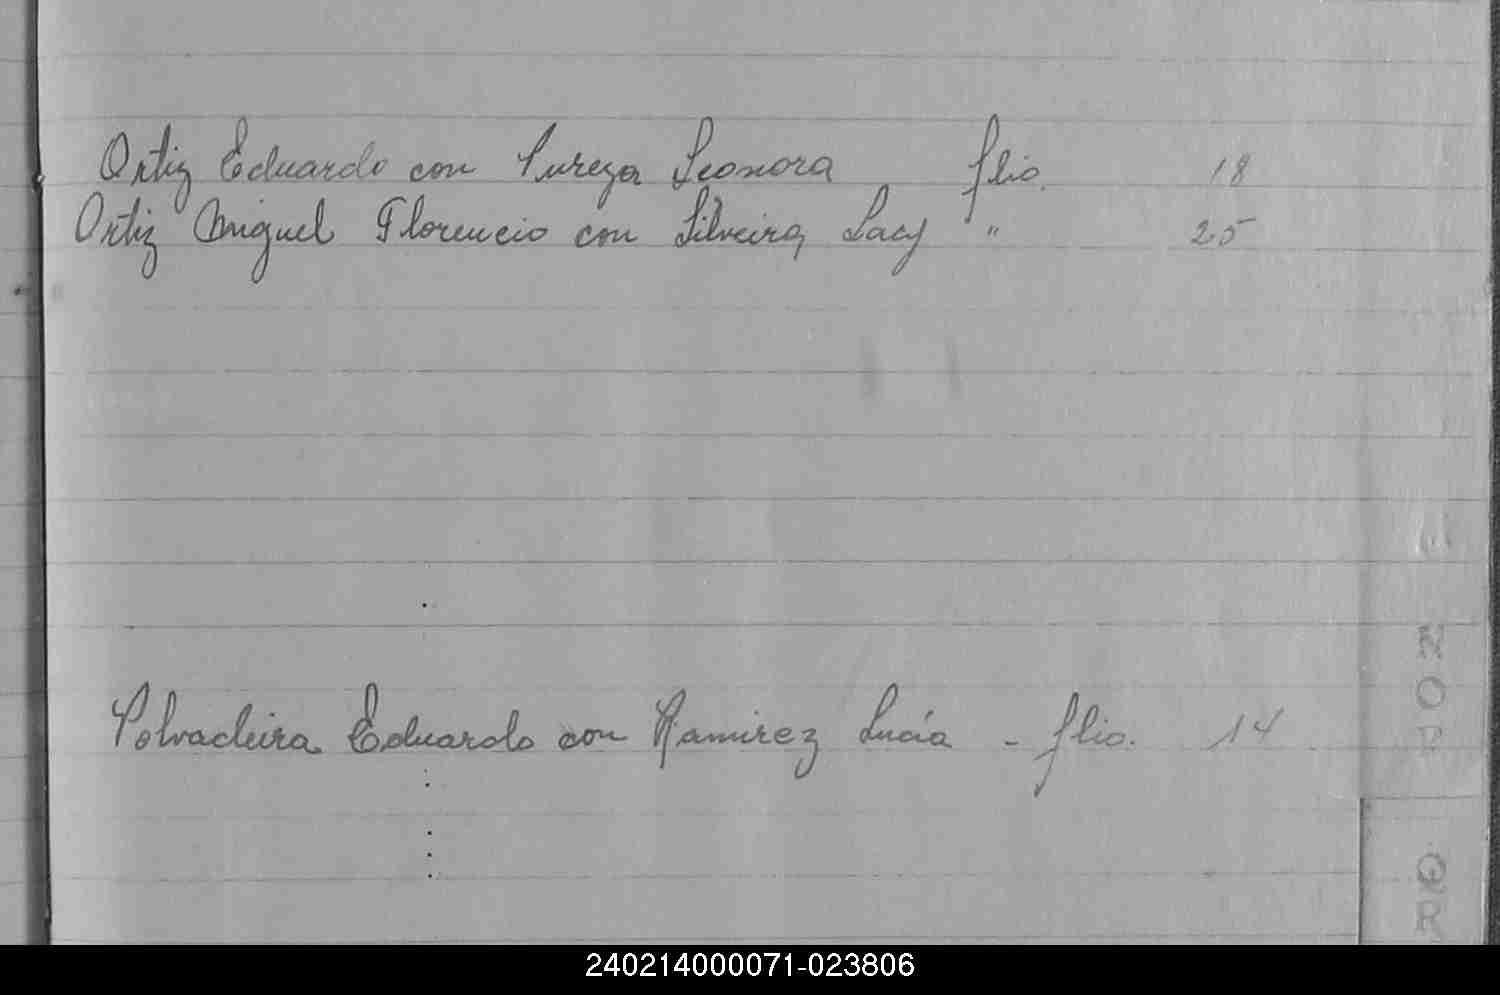 Ortiz Eduardo con Pureza Leonora flio. 18
Ortiz Miguel Florencio con Silveira, Lacy " 25
N
O
P
Polvadeira Eduardo con Ramirez Lucía - flio. 14
Q
R
240214000071-023806